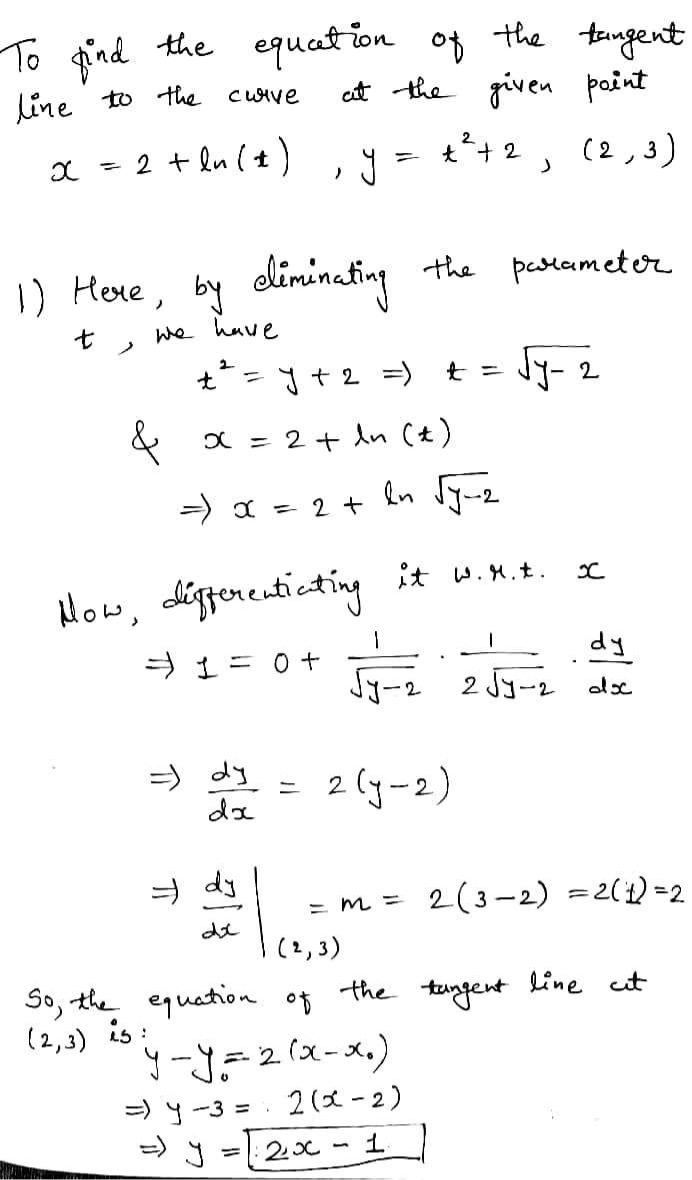 To find the equation of the tangent
line to the curve at the given point
x = 2 + ln(t) , y = t²+2 , (2,3)
1) Here, by eliminating the parameter
t, we have
t² = y + 2 ⇒ t = √y-2
& x = 2 + ln (t)
⇒ x = 2 + ln √y-2
Now, differentiating it w.r.t. x
⇒ 1 = 0 + 1/√y-2 · 1/2√y-2 · dy/dx
⇒ dy/dx = 2(y-2)
⇒ dy/dx |(2,3) = m = 2(3-2) = 2(1) = 2
So, the equation of the tangent line at
(2,3) is:
y - y₀ = 2(x-x₀)
⇒ y - 3 = 2(x-2)
⇒ y = 2x - 1